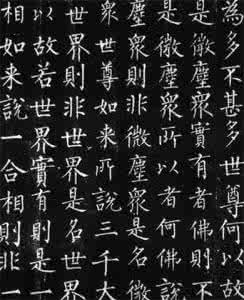 為多不甚多世尊何以故
是微塵眾實有者佛則不
是微塵眾所以者何佛說
塵眾則非微塵眾是名微
眾世尊如来所說三千大
世界則非世界是名世
以故若世界實有則是一
相如来說一合相則非一